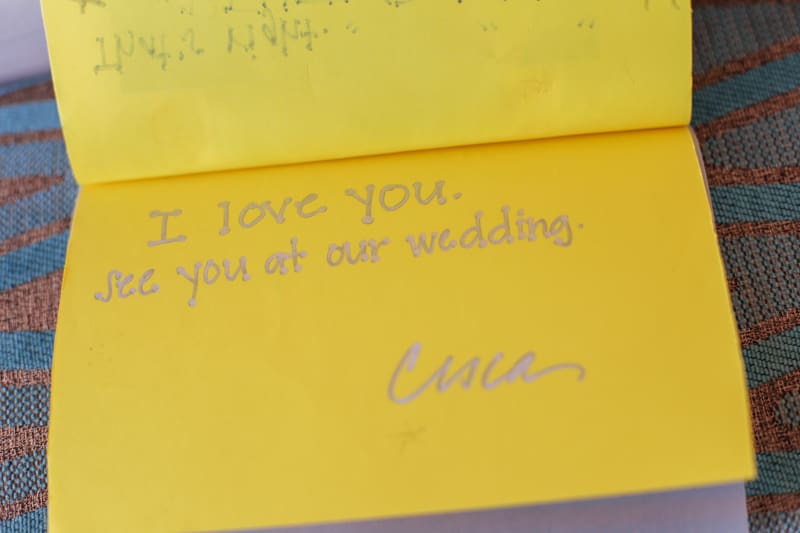 That's right.
I love you.
see you at our wedding.
Cisca